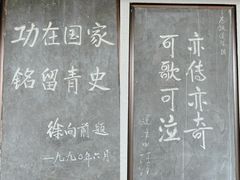 功在国家
铭留青史
徐向前题
一九九〇年六月
亦传亦奇
可歌可泣